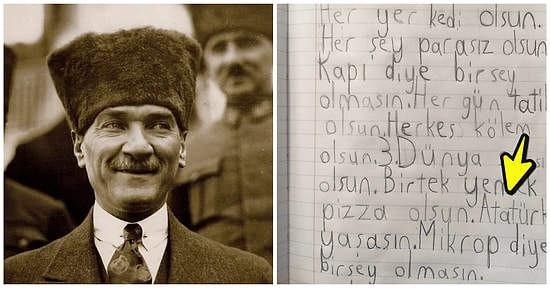 Her yer kedi olsun.
Her sey parasız olsun
Kapi diye birsey
olmasın.Her gün tatil
olsun.Herkes kölem
olsun.3.Dünya
olsun.Birtek
pizza olsun.Atatürk
yaşasın.Mikrop diye
birsey olmasın.